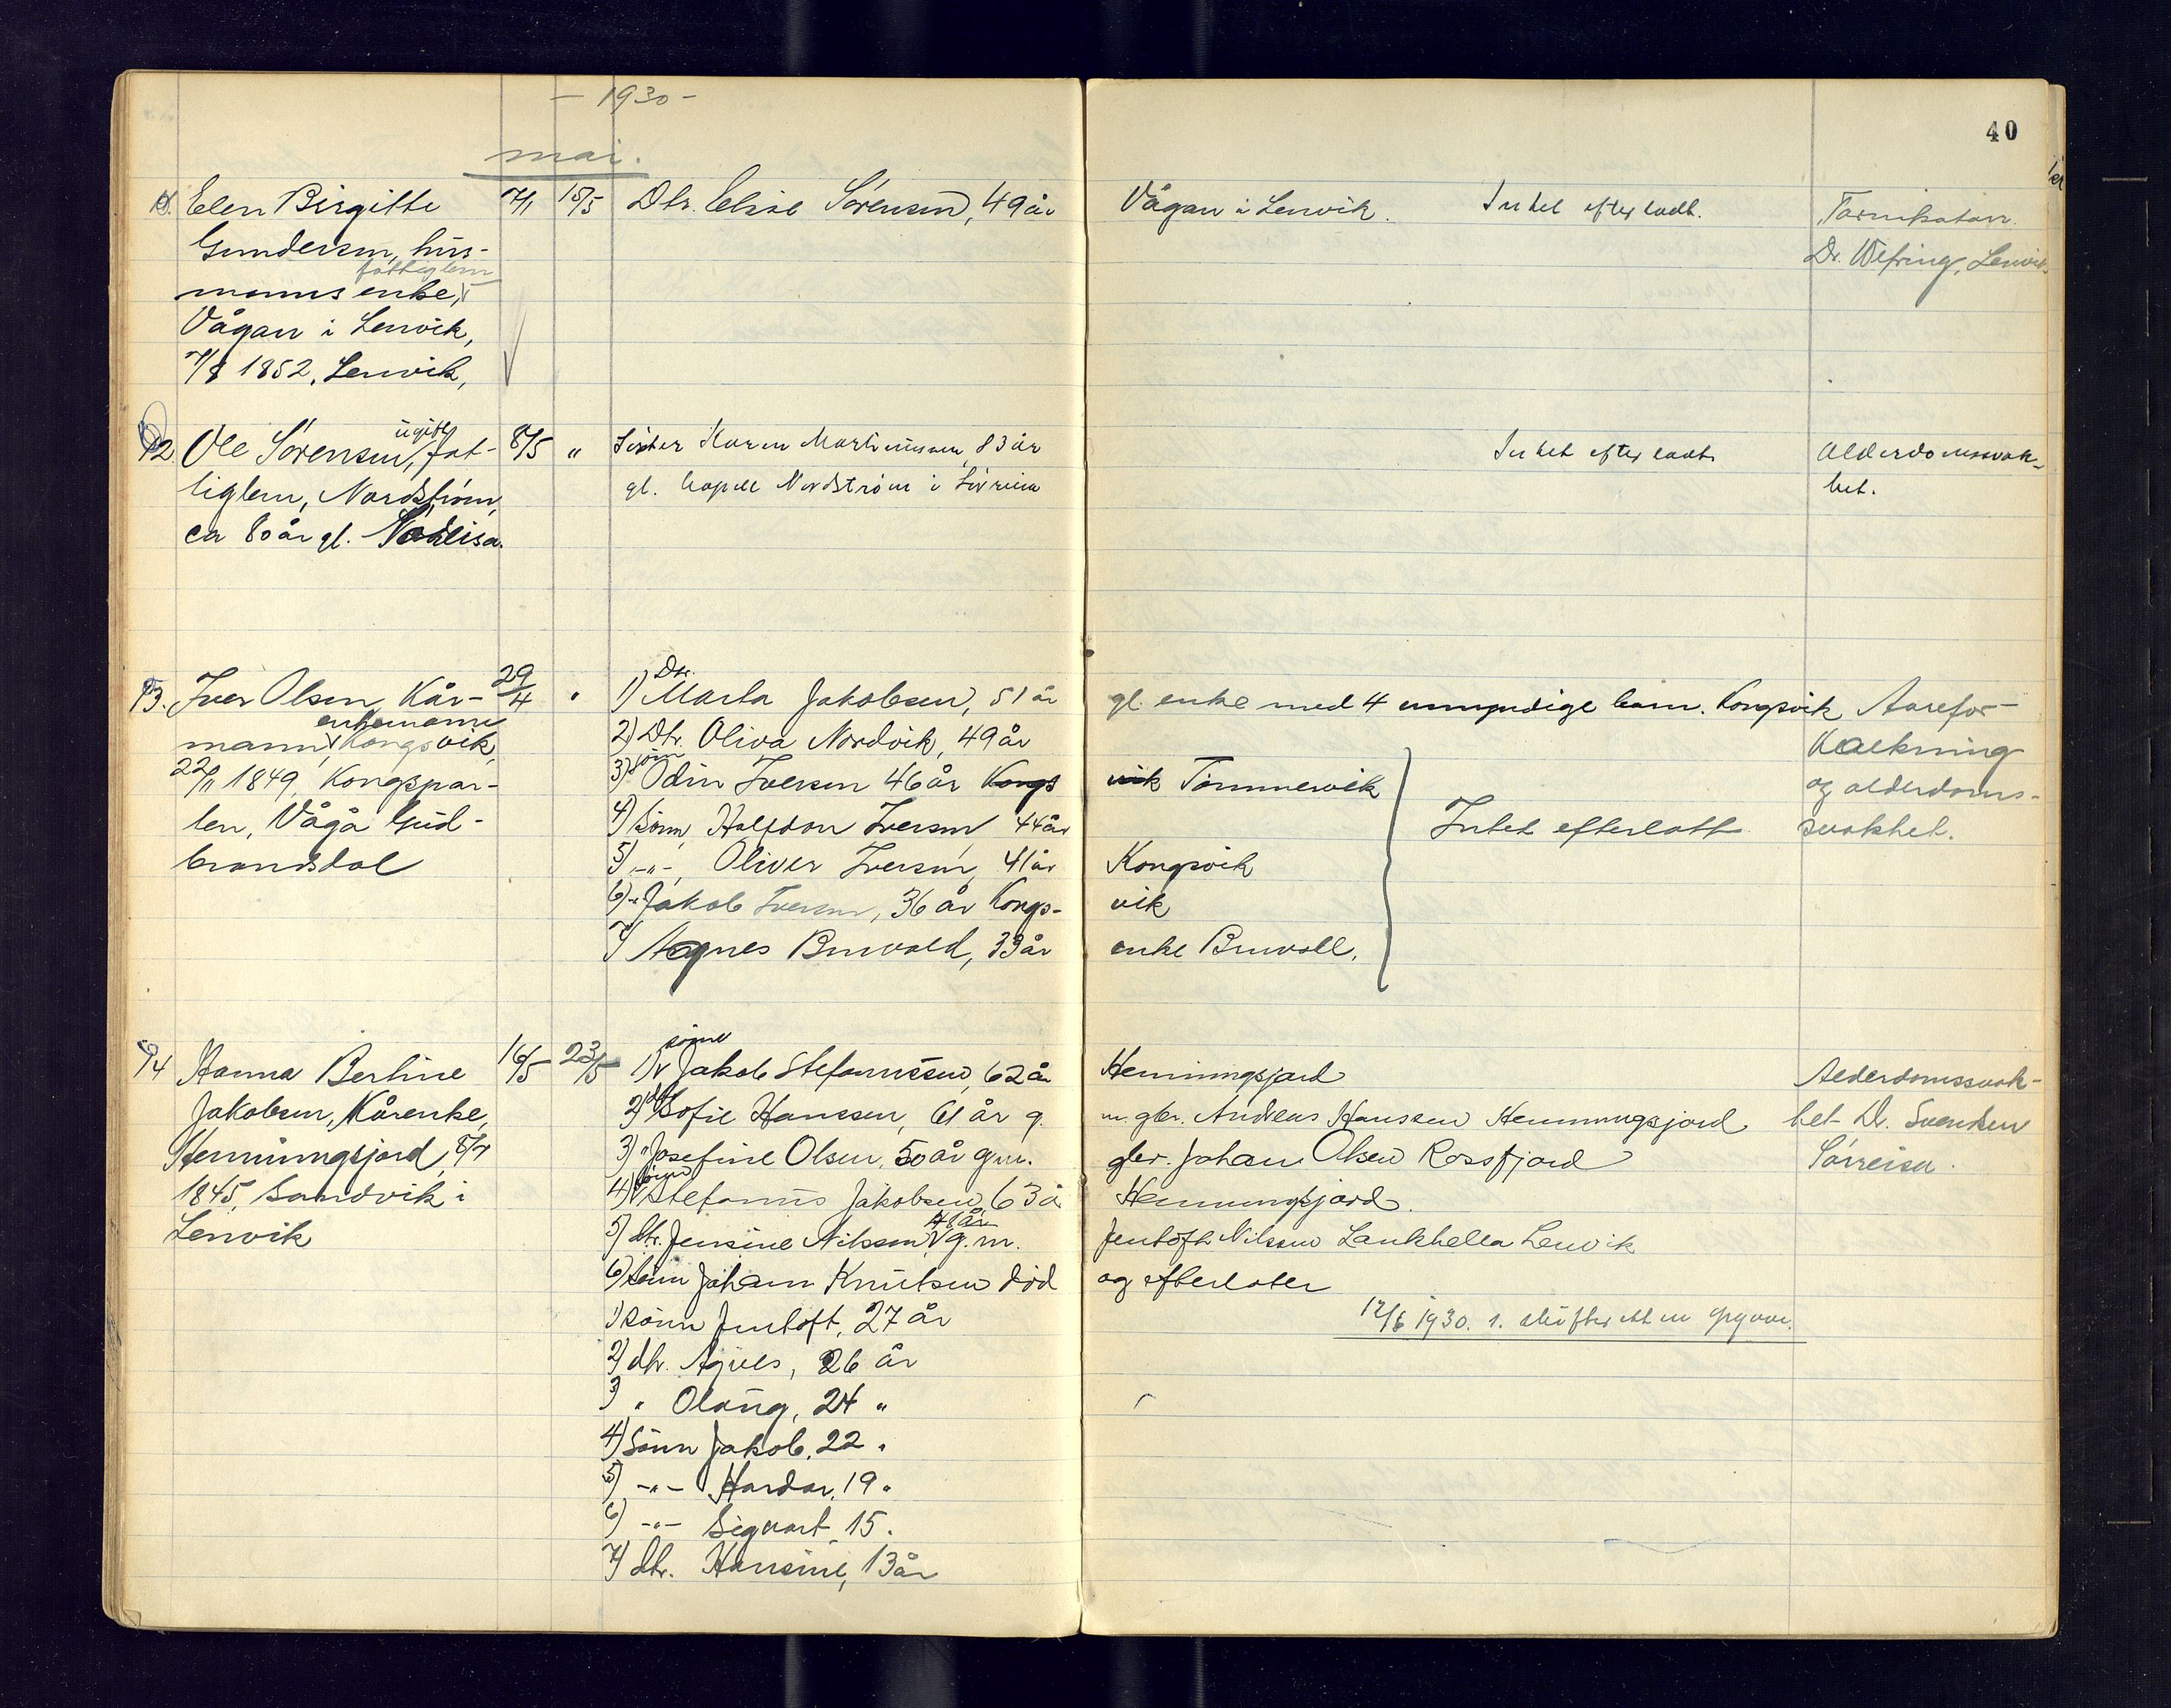 - 1930 -
40
mai.
Elen Birgitte 7/1 15/5 Dtr. Elise Sørensen, 49 år Vågan i Lenvik. Intet efterladt. Tarmkatarr.
Gundersen, hus- Dr. Wefring, Lenvik
fattiglem
manns enke,
Vågan i Lenvik,
7/8 1852, Lenvik,
ugift
12. Ole Sørensen, fat- 8/5 " Søster Karen Martinussen, 83 år Intet efterladt. Alderdomssvak-
tiglem, Nordstrøm, gl. Kapell Nordstrøm i Sørreisa het.
ca 80 år gl.
Dtr.
13. Iver Olsen, Kår- 29/4 " 1) Marta Jakobsen, 51 år gl. enke med 4 umyndige barn. Kongsvik Aarefor-
enkemann
mann, Kongsvik, 2) Dtr. Oliva Nordvik, 49 år kalkning
22/11 1849, Kongspar- 3) sønn Odin Iversen 46 år Kongs vik Tømmervik og alderdoms-
len, Vågå Gud- 4) sønn, Halfdan Iversen, 44 år Intet efterlatt svakhet.
brandsdal 5) -"-, Oliver Iversen, 41 år Kongsvik
6) -"- Jakob Iversen, 36 år Kongs- vik
7) Agnes Buvold, 33 år enke Buvoll.
sønn
14 Hanna Bertine 16/5 23/5 1) Jakob Stefanussen, 62 år Henningsjord Alderdomssvak-
Jakobsen, Kårenke, 2) dtr Sofie Hanssen, 61 år g. m. gbr. Andreas Hanssen Henningsjord het Dr. Svendsen
Henningsjord, 8/7 3) " Josefine Olsen, 50 år g.m. gbr. Johan Olsen Rossfjord Sørreisa.
1845, Sandvik i 4) sønn Stefanus Jakobsen, 63 å Henningsjord.
48 år
Lenvik 5) dtr. Jensine Nilssen g.m. Jentoft Nilssen Lankhella Lenvik
6) sønn Johann Knutsen død og efterlater
1) sønn Jentoft, 27 år 12/6 1930. 1. skifterett en
2) dtr. Agnes, 26 år
3) " Olaug, 24 "
4) sønn Jakob, 22 "
5) -"- Hardar, 19 "
6) -"- Sigvart, 15.
7) dtr. Hansine, 13 år